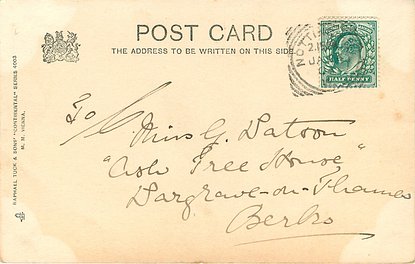 POST CARD
THE ADDRESS TO BE WRITTEN ON THIS SIDE
NOTTI
2.15
JA
HALF PENNY
To
Miss G. Watson
"Ash Tree House"
Wargrave-on-Thames
Berks
RAPHAEL TUCK & SONS' "CONTINENTAL" SERIES 4003
M. M. VIENNA.